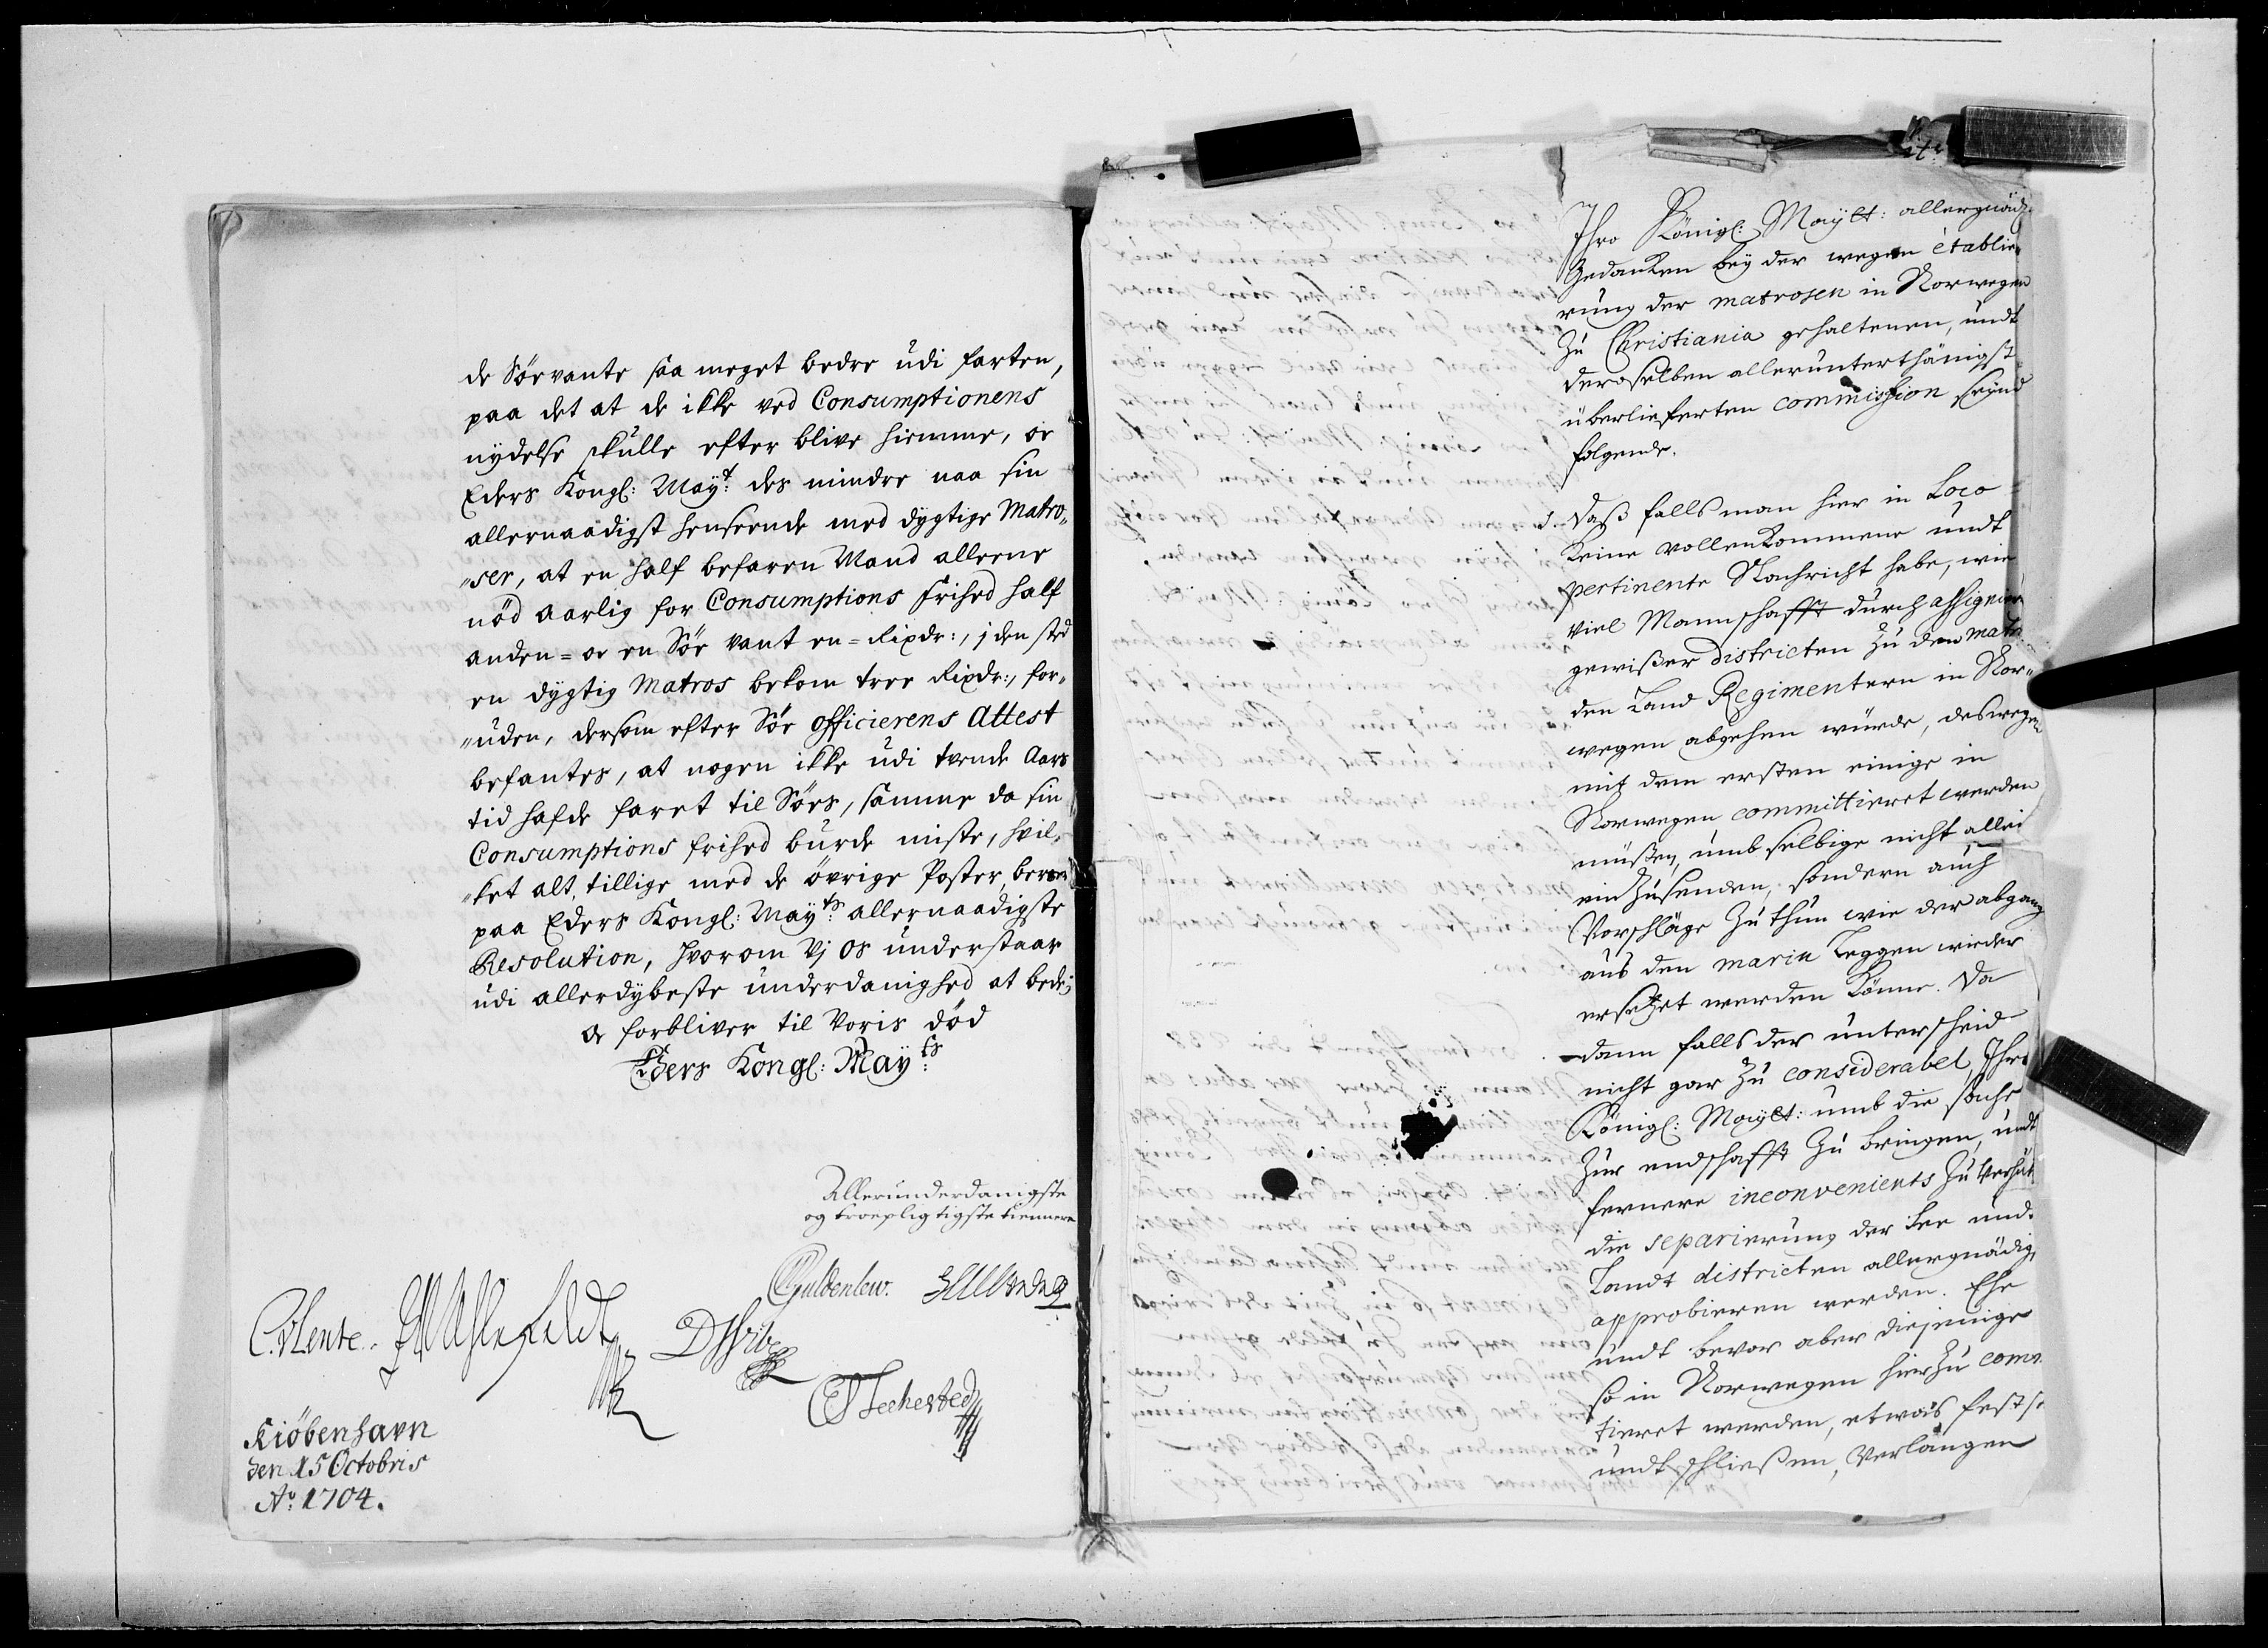 de Söevante saa meget bedre udi farten,
paa det at de ikke ved Consumptionens
nydelse skulle efter blive hiemme, oc
Eders Kongl: Mayt: des mindre naa sin
allernaadigst henseende med dygtige Matro„
„ser, at en half befaren Mand alleene
nöd aarlig for Consumptions Frihed half
anden = oc en Söe vant en = Rixdr:, j den sted
en dygtig Matros bekom tree Rixdr:, for„
„uden, dersom efter Söe officierens Attest
befantes, at nogen ikke udi tvende Aars
tid hafde faret til Söes, samme da sin
Consumptions frihed burde miste, hvil„
„ket alt, tillige med de övrige Poster, beroer
paa Eders Kongl: Mayts: allernaadigste
Resolution, hvorom Vj os understaar
udi allerdybeste underdanighed at bede;
oc forbliver til Voris död
Eders Kongl: Mayts:
Allerunderdanigste
og troepligtigste tiennere
CGuldenlew.
C. Vlente. FWAhlefeldt
CSSechested
Kiöbenhavn
den 15 Octobris
Ao: 1704.
Ihro Königl: Maytt: allergnädig
Gedancken bey der wegen ètablie„
rung der matrosen in Norwegen
zu Christiania gehaltenen, undt
deroselben allerunterthänigst
überlieferten commission seynd
folgende.
1. Daß falls man hier in Loco
Keine vollenkommene undt
pertinente Nachricht habe, wie
viel Mannschafft durch assignier
gewißer districten zu den matr
den Land Regimentern in Nor„
wegen abgehen würde, deswegen
mit dem ersten einige in
Norwegen committieret werden
müßen, umb selbige nicht allei
einzusenden, sondern auch
Vorschläge zu thun wie der abgang
aus den marin Leggen wieder
ersetzet werden könne. Da
dann falls der unterscheid
nicht gar zu considerabel, Ihro
Königl: Maytt: umb die sache
zur endschafft zu bringen, undt
fernere inconvenients zu verhüt
die separierung der See und
Landt districten allergnädig
approbieren werden. Ehe
undt bevor aber diejenige
so in Norwegen hierzu comm
tieret werden, etwas fest s
undt schließen, verlangen